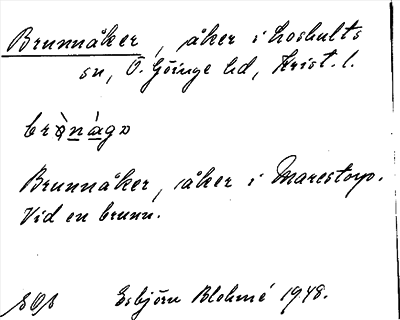 Brunnåker, åker i Loshults
sn, Ö. Göinge hd, Krist. l.
brònágo
Brunnåker, åker i Marestorp.
Vid en brunn.
Esbjörn Blohmé 1948.